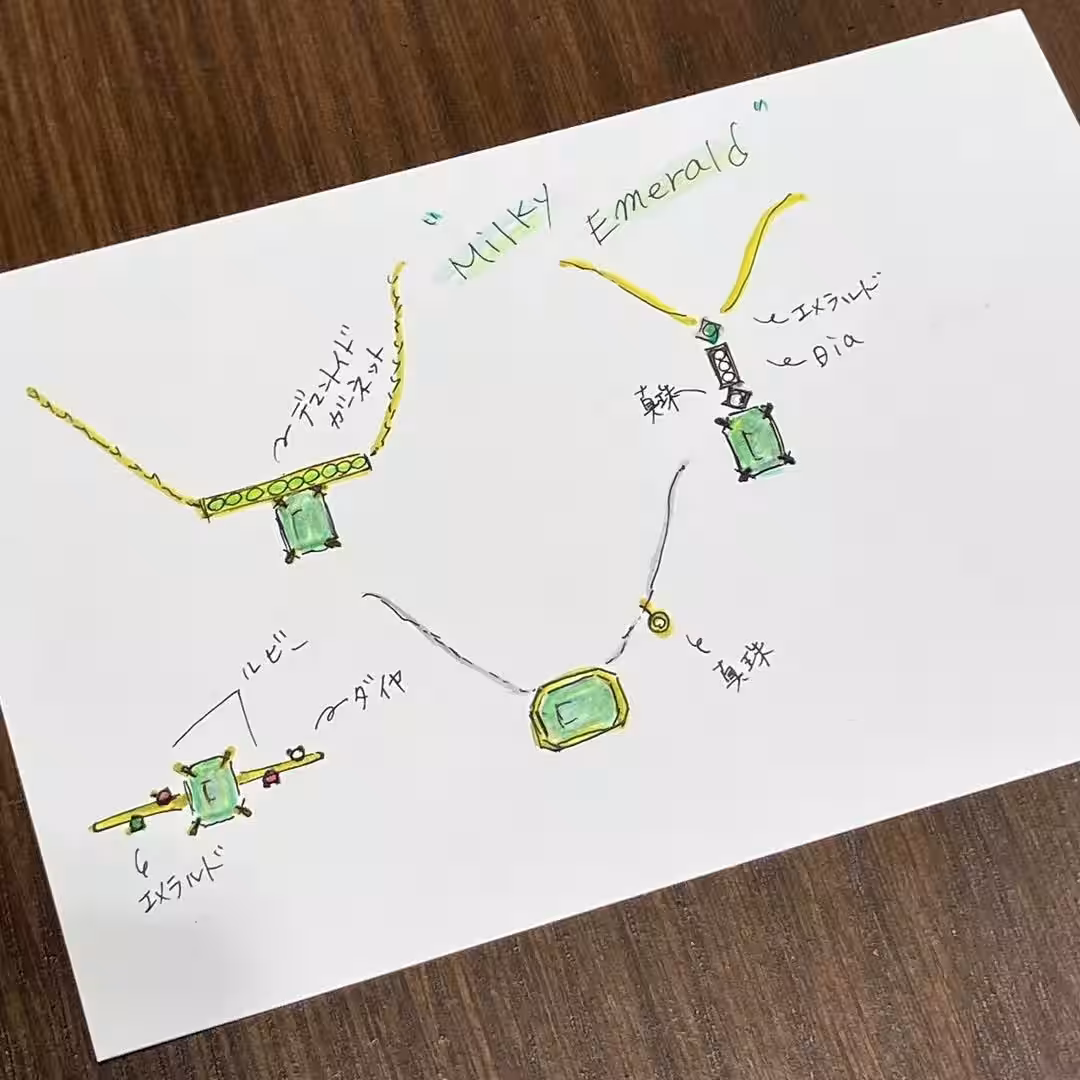 "Milky Emerald"
デマントイド
ガーネット
エメラルド
Dia
真珠
真珠
ルビー
ダイヤ
エメラルド